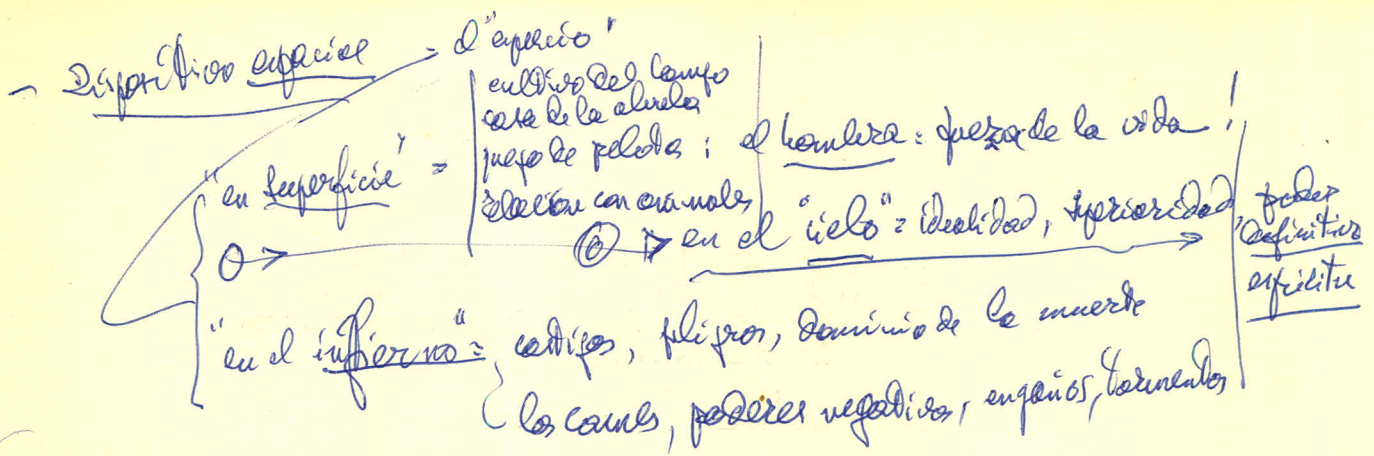 - Dispositivo espacial = el "espacio"
"en superficie" =
cultivo del campo
casa de la abuela
juego de pelota ; el hombre = fuerza de la vida !
relación con animales
en el "cielo" = idealidad, superioridad
poder
definitivo
espíritu
"en el infierno" = castigos, peligros, dominio de la muerte
los cames, poderes negativos, engaños, tormentos